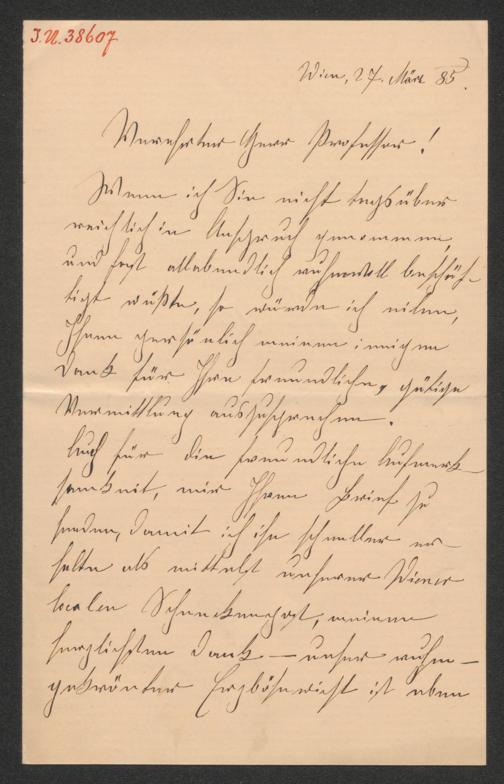 J.N. 38607
Wien, 27. März 85.
Verehrter Herr Professor!
Wenn ich Sie nicht tagsüber
reichlich in Anspruch genommen,
und fast allabendlich ruhmvoll beschäf-
tigt wüßte, so würde ich eilen,
Ihnen persönlich meinen innigen
Dank für Ihre freundliche, gütige
Vermittlung auszusprechen.
Auch für die freundliche Aufmerk-
samkeit, mir Ihren Brief zu
senden, damit ich ihn schneller er-
halte als mittelst unserer Wiener
localen Schneckenpost, meinen
herzlichsten Dank — unser ruhm-
gekrönter Erzbösewicht ist eben